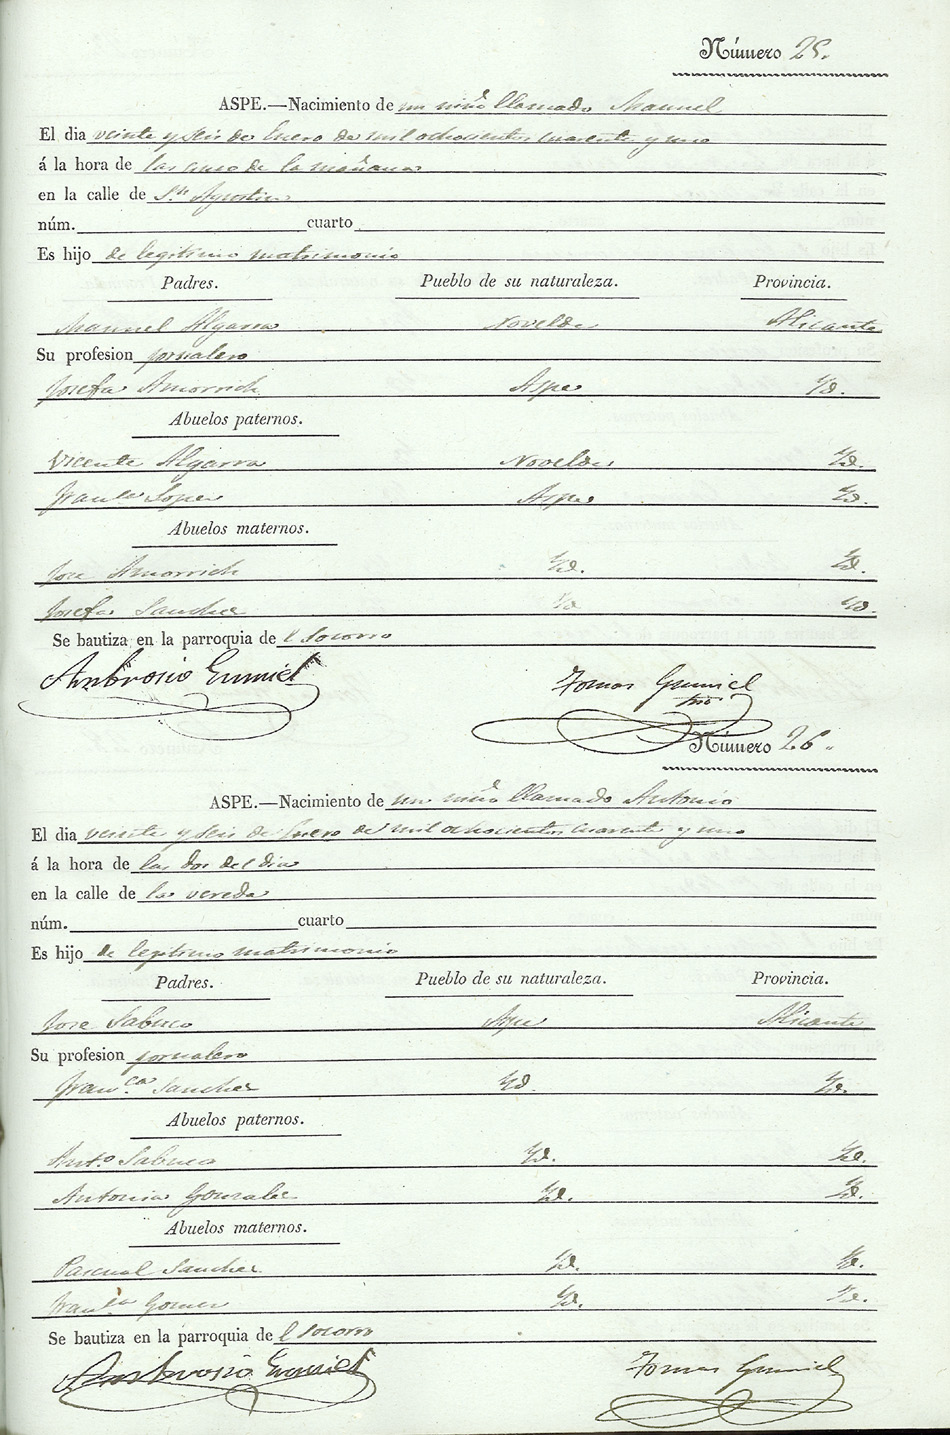 Número 25.
ASPE.—Nacimiento de un niño llamado Manuel
El dia veinte y seis de Enero de mil ochocientos cuarenta y uno
á la hora de las once de la mañana
en la calle de Sn Agustin
núm. cuarto
Es hijo de legitimo matrimonio
Padres. Pueblo de su naturaleza. Provincia.
Manuel Algarra Novelda Alicante
Su profesion jornalero
Josefa Amorrich Aspe Yd.
Abuelos paternos.
Vicente Algarra Novelda Yd.
Franca Lopez Aspe Yd.
Abuelos maternos.
Jose Amorrich Yd. Yd.
Josefa Sanchez Yd Yd.
Se bautiza en la parroquia de el Socorro
Ambrosio Gumiel Tomas Gumiel
Número 26.
ASPE.—Nacimiento de un niño llamado Antonio
El dia veinte y seis de Enero de mil ochocientos cuarenta y uno
á la hora de las dos del dia
en la calle de la vereda
núm. cuarto
Es hijo de legitimo matrimonio
Padres. Pueblo de su naturaleza. Provincia.
Jose Sabuco Aspe Alicante
Su profesion jornalero
Franca. Sanchez Yd. Yd.
Abuelos paternos.
Anto. Sabuco Yd. Yd.
Antonia Gonzalez Yd. Yd.
Abuelos maternos.
Pascual Sanchez Yd. Yd.
Franca Gomez Yd. Yd.
Se bautiza en la parroquia de el Socorro
Ambrosio Gumiel Tomas Gumiel